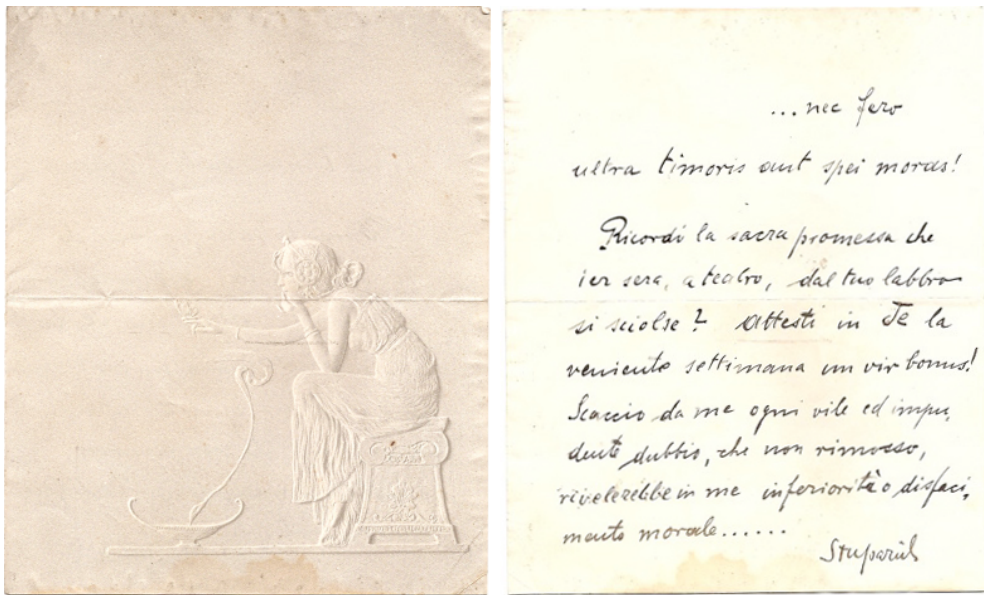 ... nec fero
ultra timoris aut spei moras!
Ricordi la sacra promessa che
ier sera, a teatro, dal tuo labbro
si sciolse? Attesti in Te la
veniente settimana un vir bonus!
Scaccio da me ogni vile ed impu,
dente dubbio, che non rimosso,
rivelerebbe in me inferiorità o disfaci,
mento morale......
Stuparich